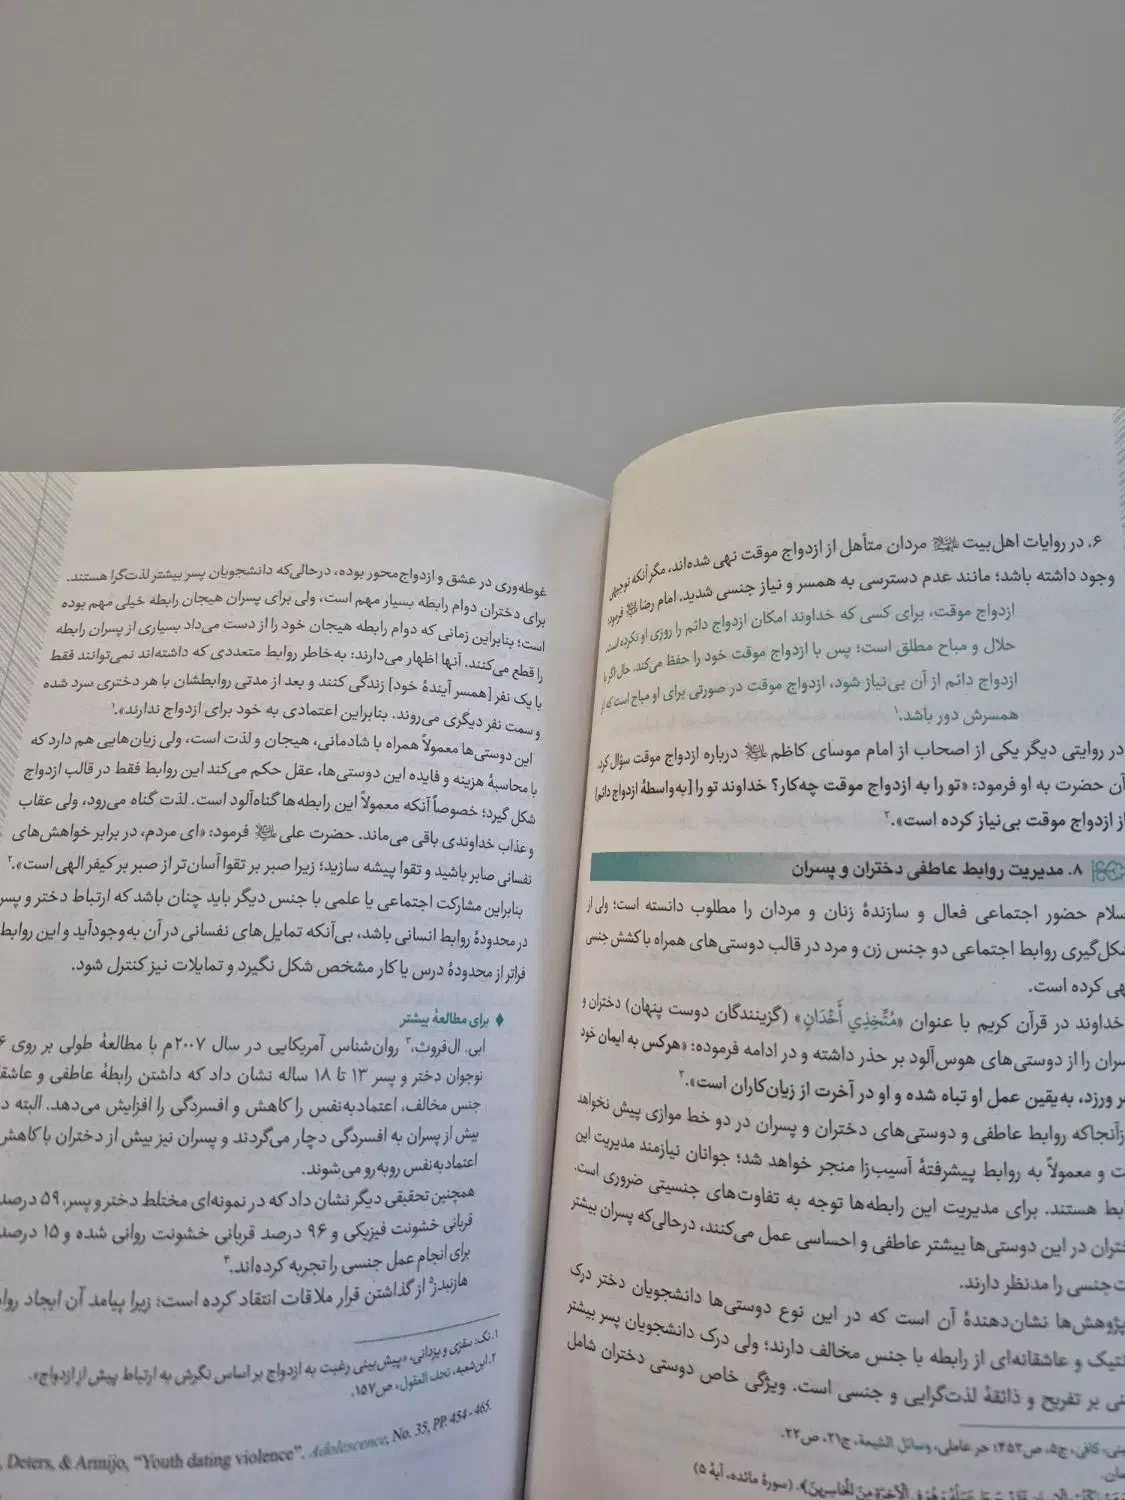 ۶. در روایات اهل‌بیت مردان متأهل از ازدواج موقت نهی شده‌اند، مگر آنکه توجیهی
وجود داشته باشد؛ مانند عدم دسترسی به همسر و نیاز جنسی شدید. امام رضا فرمود:
ازدواج موقت، برای کسی که خداوند امکان ازدواج دائم را روزی او نکرده است،
حلال و مباح مطلق است؛ پس با ازدواج موقت خود را حفظ می‌کند. حال اگر با
ازدواج دائم از آن بی‌نیاز شود، ازدواج موقت در صورتی برای او مباح است که از
همسرش دور باشد.۱
در روایتی دیگر یکی از اصحاب از امام موسای کاظم درباره ازدواج موقت سؤال کرد،
آن حضرت به او فرمود: «تو را به ازدواج موقت چه‌کار؟ خداوند تو را [به‌واسطهٔ ازدواج دائم]
از ازدواج موقت بی‌نیاز کرده است».۲
۸. مدیریت روابط عاطفی دختران و پسران
سلام حضور اجتماعی فعال و سازندهٔ زنان و مردان را مطلوب دانسته است؛ ولی از
شکل‌گیری روابط اجتماعی دو جنس زن و مرد در قالب دوستی‌های همراه با کشش جنسی
نهی کرده است.
خداوند در قرآن کریم با عنوان «مُتَّخِذِي أَخْدَانٍ» (گزینندگان دوست پنهان) دختران و
سران را از دوستی‌های هوس‌آلود بر حذر داشته و در ادامه فرموده: «هرکس به ایمان خود
ر ورزد، به‌یقین عمل او تباه شده و او در آخرت از زیان‌کاران است».۳
زآنجاکه روابط عاطفی و دوستی‌های دختران و پسران در دو خط موازی پیش نخواهد
ت و معمولاً به روابط پیشرفتهٔ آسیب‌زا منجر خواهد شد؛ جوانان نیازمند مدیریت این
بط هستند. برای مدیریت این رابطه‌ها توجه به تفاوت‌های جنسیتی ضروری است.
ختران در این دوستی‌ها بیشتر عاطفی و احساسی عمل می‌کنند، درحالی‌که پسران بیشتر
ت‌جنسی را مدنظر دارند.
پژوهش‌ها نشان‌دهندهٔ آن است که در این نوع دوستی‌ها دانشجویان دختر درک
نتیک و عاشقانه‌ای از رابطه با جنس مخالف دارند؛ ولی درک دانشجویان پسر بیشتر
نی بر تفریح و ذائقهٔ لذت‌گرایی و جنسی است. ویژگی خاص دوستی دختران شامل
ینی، کافی، ج۵، ص۴۵۳؛ حر عاملی، وسائل الشیعة، ج۲۱، ص۲۲.
سان.
الْآخِرَةِ مِنَ الْخَاسِرِينَ». (سورهٔ مائده، آیهٔ ۵)
غوطه‌وری در عشق و ازدواج‌محور بوده، درحالی‌که دانشجویان پسر بیشتر لذت‌گرا هستند.
برای دختران دوام رابطه بسیار مهم است، ولی برای پسران هیجان رابطه خیلی مهم بوده
است؛ بنابراین زمانی که دوام رابطه هیجان خود را از دست می‌داد بسیاری از پسران رابطه
را قطع می‌کنند. آنها اظهار می‌دارند: به‌خاطر روابط متعددی که داشته‌اند نمی‌توانند فقط
با یک نفر [همسر آیندهٔ خود] زندگی کنند و بعد از مدتی روابطشان با هر دختری سرد شده
و سمت نفر دیگری می‌روند. بنابراین اعتمادی به خود برای ازدواج ندارند».۱
این دوستی‌ها معمولاً همراه با شادمانی، هیجان و لذت است، ولی زیان‌هایی هم دارد که
با محاسبهٔ هزینه و فایده این دوستی‌ها، عقل حکم می‌کند این روابط فقط در قالب ازدواج
شکل گیرد؛ خصوصاً آنکه معمولاً این رابطه‌ها گناه‌آلود است. لذت گناه می‌رود، ولی عقاب
و عذاب خداوندی باقی می‌ماند. حضرت علی فرمود: «ای مردم، در برابر خواهش‌های
نفسانی صابر باشید و تقوا پیشه سازید؛ زیرا صبر بر تقوا آسان‌تر از صبر بر کیفر الهی است».۲
بنابراین مشارکت اجتماعی یا علمی با جنس دیگر باید چنان باشد که ارتباط دختر و پسر
در محدودهٔ روابط انسانی باشد، بی‌آنکه تمایل‌های نفسانی در آن به‌وجودآید و این روابط
فراتر از محدودهٔ درس یا کار مشخص شکل نگیرد و تمایلات نیز کنترل شود.
♦ برای مطالعهٔ بیشتر
ابی. ال‌فروث،۳ روان‌شناس آمریکایی در سال ۲۰۰۷م با مطالعهٔ طولی بر روی
نوجوان دختر و پسر ۱۳ تا ۱۸ ساله نشان داد که داشتن رابطهٔ عاطفی و عاشقا
جنس مخالف، اعتمادبه‌نفس را کاهش و افسردگی را افزایش می‌دهد. البته د
بیش از پسران به افسردگی دچار می‌گردند و پسران نیز بیش از دختران با کاهش
اعتمادبه‌نفس روبه‌رو می‌شوند.
همچنین تحقیقی دیگر نشان داد که در نمونه‌ای مختلط دختر و پسر، ۵۹ درصد
قربانی خشونت فیزیکی و ۹۶ درصد قربانی خشونت روانی شده و ۱۵ درصد
برای انجام عمل جنسی را تجربه کرده‌اند.۴
هازنیدز۵ از گذاشتن قرار ملاقات انتقاد کرده است؛ زیرا پیامد آن ایجاد روا
۱. نک: سفزی و یزدانی، «پیش‌بینی رغبت به ازدواج بر اساس نگرش به ارتباط پیش از ازدواج».
۲. ابن‌شعبه، تحف العقول، ص۱۵۷.
, Deters, & Armijo, "Youth dating violence". Adolescence, No. 35, PP. 454 - 465.